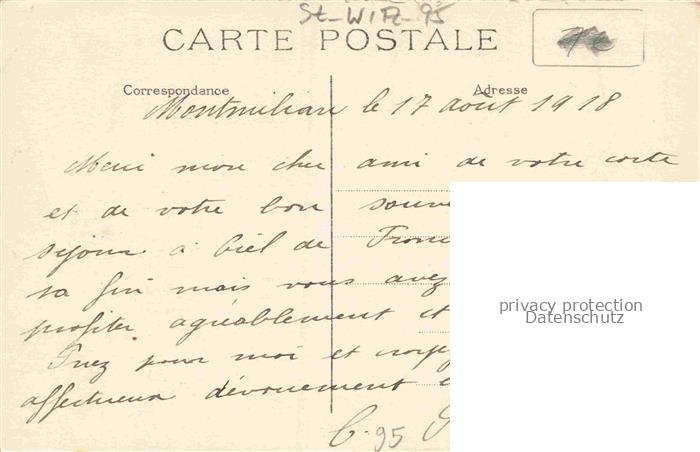 St-Witz-95
CARTE POSTALE
Correspondance
Adresse
Montmilian le 17 août 1918
Merci mon cher ami de votre carte
et de votre bon souve
séjour à Ciel de France
sa fin mais vous avez
profiter agréablement et
Priez pour moi et
affectueux dévouement
C.
95
privacy protection
Datenschutz